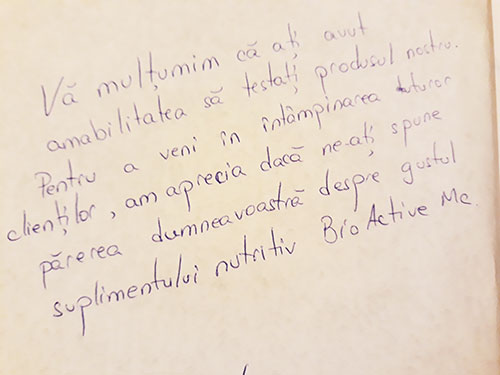 Vă mulțumim că ați avut
amabilitatea să testați produsul nostru.
Pentru a veni în întâmpinarea tuturor
clienților, am aprecia dacă ne-ați spune
părerea dumneavoastră despre gustul
suplimentului nutritiv BioActive Mc.